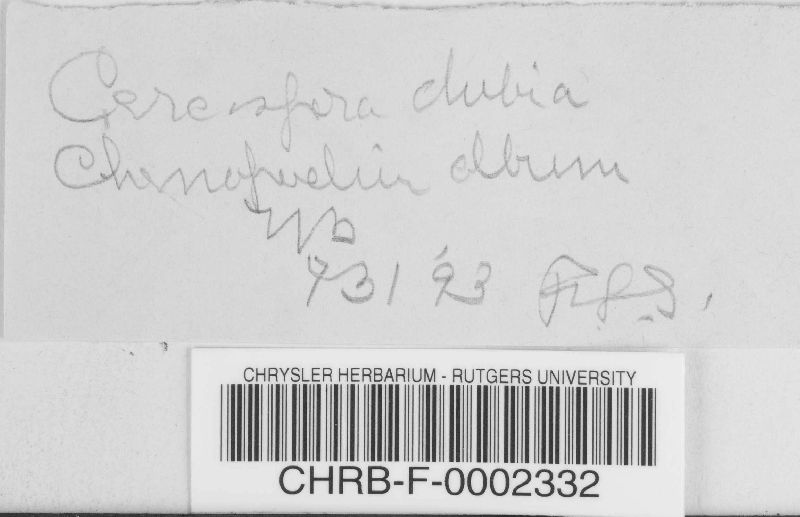 Cercospora dubia
Chenopodium album
731 93
CHRYSLER HERBARIUM - RUTGERS UNIVERSITY
CHRB-F-0002332